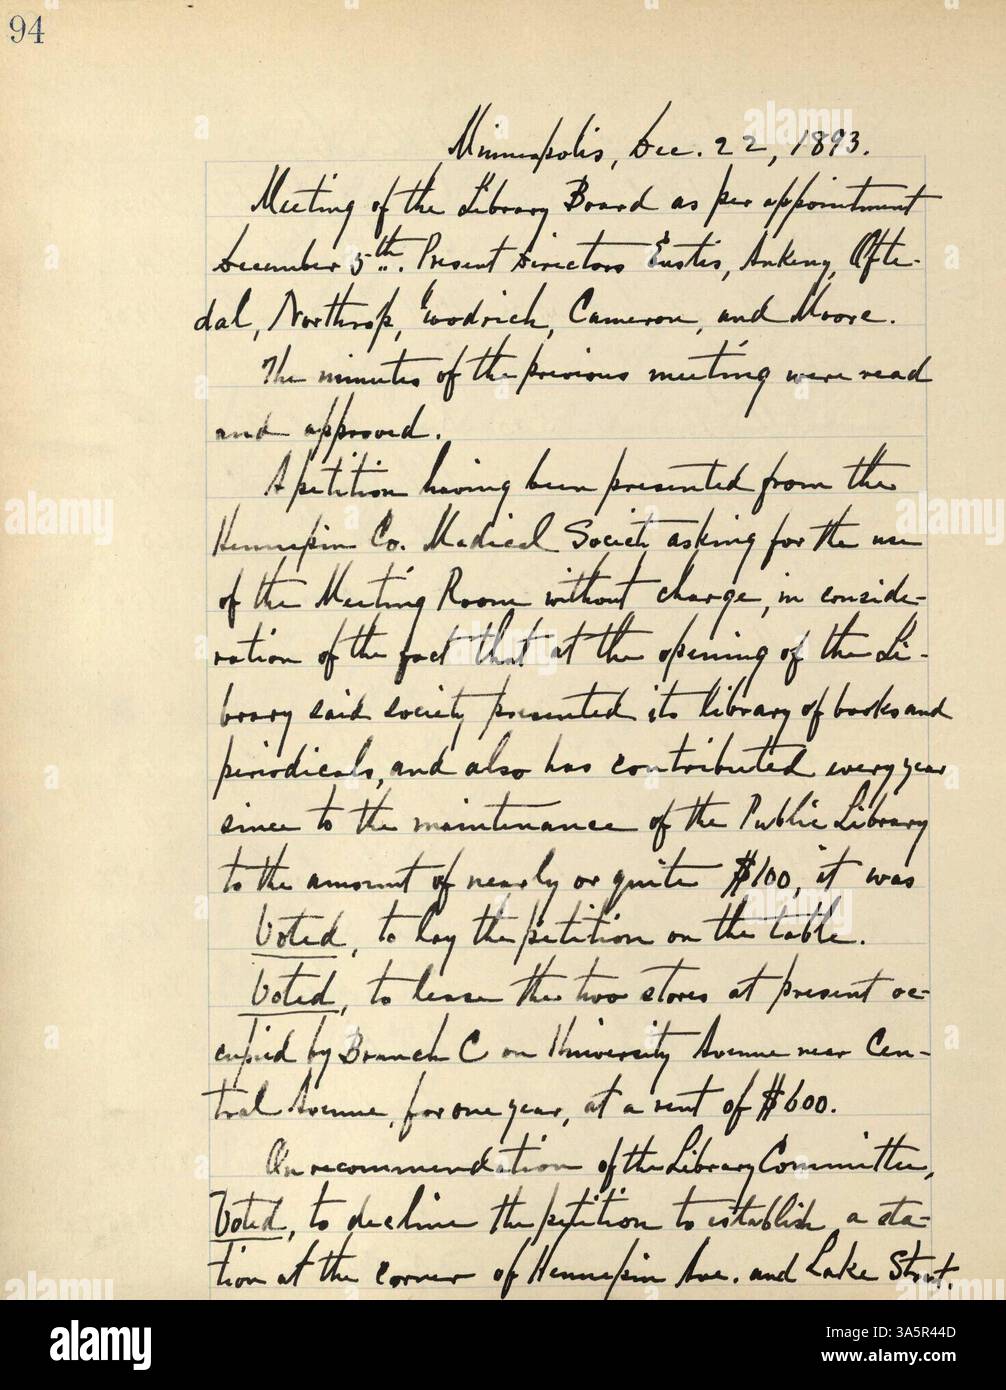 94
Minneapolis, Dec. 22, 1893.
Meeting of the Library Board as per appointment
December 5th. Present Directors Eustis, Ankeny, Ofte-
dal, Northrop, Goodrich, Cameron, and Moore.
The minutes of the previous meeting were read
and approved.
A petition having been presented from the
Hennepin Co. Medical Society asking for the use
of the Meeting Room without charge, in conside-
ration of the fact that at the opening of the Li-
brary said society presented its library of books and
periodicals, and also has contributed every year
since to the maintenance of the Public Library
to the amount of nearly or quite $100, it was
Voted, to lay the petition on the table.
Voted, to lease the two stores at present oc-
cupied by Branch C on University Avenue near Cen-
tral Avenue, for one year, at a rent of $600.
On recommendation of the Library Committee,
Voted, to decline the petition to establish a sta-
tion at the corner of Hennepin Ave. and Lake Street.
alamy
Image ID: 3A5R44D
www.alamy.com